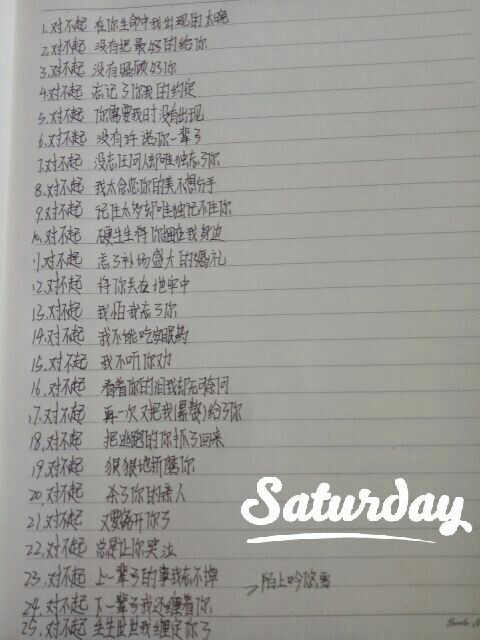 1.对不起 在你生命中我出现的太晚
2.对不起 没有把最好的给你
3.对不起 没有照顾好你
4.对不起 忘记了你我的约定
5.对不起 你需要我时没有出现
6.对不起 没有许诺你一辈子
7.对不起 没忘任何人却唯独忘了你
8.对不起 我太念恋你的美不想分手
9.对不起 记住太多却唯独记不住你
10.对不起 硬生生将你捆在我身边
11.对不起 忘了补场盛大的婚礼
12.对不起 将你关在地牢中
13.对不起 我怕我忘了你
14.对不起 我不能吃安眠药
15.对不起 我不听你劝
16.对不起 看着你的泪我却无可奈何
17.对不起 再一次又把我(累赘)给了你
18.对不起 把逃跑的你抓了回来
19.对不起 狠狠地折磨你
20.对不起 杀了你的亲人
21.对不起 又要离开你了
22.对不起 总是让你哭泣
23.对不起 上一辈子的事我忘不掉
陌上吟悠雪
24.对不起 下一辈子我还缠着你
25.对不起 生生世世我缠定你了
Saturday